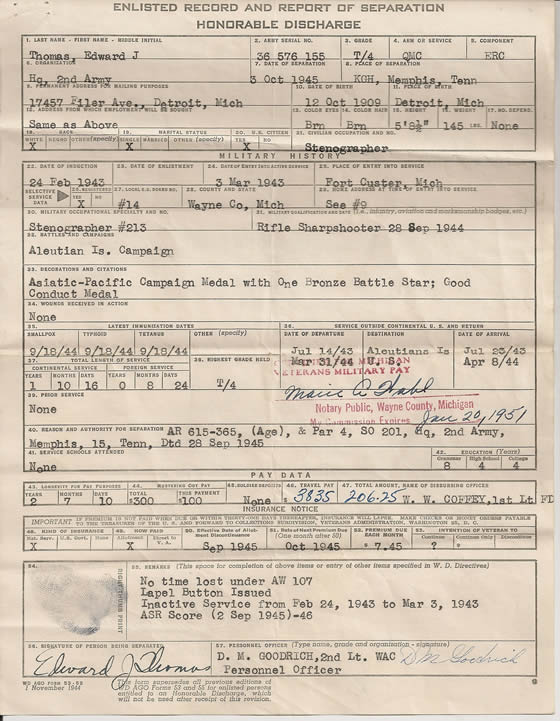 ENLISTED RECORD AND REPORT OF SEPARATION
HONORABLE DISCHARGE
1. LAST NAME - FIRST NAME - MIDDLE INITIAL 2. ARMY SERIAL NO. 3. GRADE 4. ARM OR SERVICE 5. COMPONENT
Thomas, Edward J 36 576 155 T/4 QMC ERC
6. ORGANIZATION 7. DATE OF SEPARATION 8. PLACE OF SEPARATION
Hq, 2nd Army 3 Oct 1945 KGH, Memphis, Tenn
9. PERMANENT ADDRESS FOR MAILING PURPOSES 10. DATE OF BIRTH 11. PLACE OF BIRTH
17457 Filer Ave., Detroit, Mich 12 Oct 1909 Detroit, Mich
12. ADDRESS FROM WHICH EMPLOYMENT WILL BE SOUGHT 13. COLOR EYES 14. COLOR HAIR 15. HEIGHT 16. WEIGHT 17. NO. DEPEND.
Same as Above Brn Brn 5'8½" 145 LBS. None
18. RACE 19. MARITAL STATUS 20. U.S. CITIZEN 21. CIVILIAN OCCUPATION AND NO.
WHITE NEGRO OTHER (specify) SINGLE MARRIED OTHER (specify) YES NO
X X X Stenographer
MILITARY HISTORY
22. DATE OF INDUCTION 23. DATE OF ENLISTMENT 24. DATE OF ENTRY INTO ACTIVE SERVICE 25. PLACE OF ENTRY INTO SERVICE
24 Feb 1943 3 Mar 1943 Fort Custer, Mich
SELECTIVE SERVICE DATA 26. REGISTERED YES NO 27. LOCAL S.S. BOARD NO. 28. COUNTY AND STATE 29. HOME ADDRESS AT TIME OF ENTRY INTO SERVICE
X #14 Wayne Co, Mich See #9
30. MILITARY OCCUPATIONAL SPECIALTY AND NO. 31. MILITARY QUALIFICATION AND DATE (i.e., infantry, aviation and marksmanship badges, etc.)
Stenographer #213 Rifle Sharpshooter 28 Sep 1944
32. BATTLES AND CAMPAIGNS
Aleutian Is. Campaign
33. DECORATIONS AND CITATIONS
Asiatic-Pacific Campaign Medal with One Bronze Battle Star; Good
Conduct Medal
34. WOUNDS RECEIVED IN ACTION
None
35. LATEST IMMUNIZATION DATES 36. SERVICE OUTSIDE CONTINENTAL U.S. AND RETURN
SMALLPOX TYPHOID TETANUS OTHER (specify) DATE OF DEPARTURE DESTINATION DATE OF ARRIVAL
9/18/44 9/18/44 9/18/44 Jul 14/43 Aleutians Is Jul 23/43
37. TOTAL LENGTH OF SERVICE 38. HIGHEST GRADE HELD Mar 31/44 U. S. Apr 8/44
MICHIGAN
VETERANS MILITARY PAY
CONTINENTAL SERVICE FOREIGN SERVICE
YEARS MONTHS DAYS YEARS MONTHS DAYS
1 10 16 0 8 24 T/4
39. PRIOR SERVICE
None
Notary Public, Wayne County, Michigan
My Commission Expires Jan 20, 1951
40. REASON AND AUTHORITY FOR SEPARATION AR 615-365, (Age), & Par 4, SO 201, Hq, 2nd Army,
Memphis, 15, Tenn, Dtd 28 Sep 1945
41. SERVICE SCHOOLS ATTENDED 42. EDUCATION (Years)
None Grammar High School College
8 4 4
PAY DATA
43. LONGEVITY FOR PAY PURPOSES 44. MUSTERING OUT PAY 45. SOLDIER DEPOSITS 46. TRAVEL PAY 47. TOTAL AMOUNT, NAME OF DISBURSING OFFICER
YEARS MONTHS DAYS TOTAL THIS PAYMENT
2 7 10 $300 $100 None $ 3835 206.25 W. W. COFFEY, 1st Lt FD
INSURANCE NOTICE
IMPORTANT IF PREMIUM IS NOT PAID WHEN DUE OR WITHIN THIRTY-ONE DAYS THEREAFTER, INSURANCE WILL LAPSE. MAKE CHECKS OR MONEY ORDERS PAYABLE
TO THE TREASURER OF THE U. S. AND FORWARD TO COLLECTIONS SUBDIVISION, VETERANS ADMINISTRATION, WASHINGTON 25, D. C.
48. KIND OF INSURANCE 49. HOW PAID 50. Effective Date of Allotment Discontinuance 51. Date of Next Premium Due (One month after 50) 52. PREMIUM DUE EACH MONTH 53. INTENTION OF VETERAN TO
Nat. Serv. U.S. Govt. None Allotment Direct to V. A. Continue Continue Only Discontinue
X X Sep 1945 Oct 1945 $ 7.45 ?
54. RIGHT THUMB PRINT
55. REMARKS (This space for completion of above items or entry of other items specified in W. D. Directives)
No time lost under AW 107
Lapel Button Issued
Inactive Service from Feb 24, 1943 to Mar 3, 1943
ASR Score (2 Sep 1945)-46
56. SIGNATURE OF PERSON BEING SEPARATED 57. PERSONNEL OFFICER (Type name, grade and organization - signature)
Edward J Thomas D. M. GOODRICH, 2nd Lt. WAC D M Goodrich
Personnel Officer
WD AGO FORM 53-55
1 November 1944
This form supersedes all previous editions of
WD AGO Forms 53 and 55 for enlisted persons
entitled to an Honorable Discharge, which
will not be used after receipt of this revision.